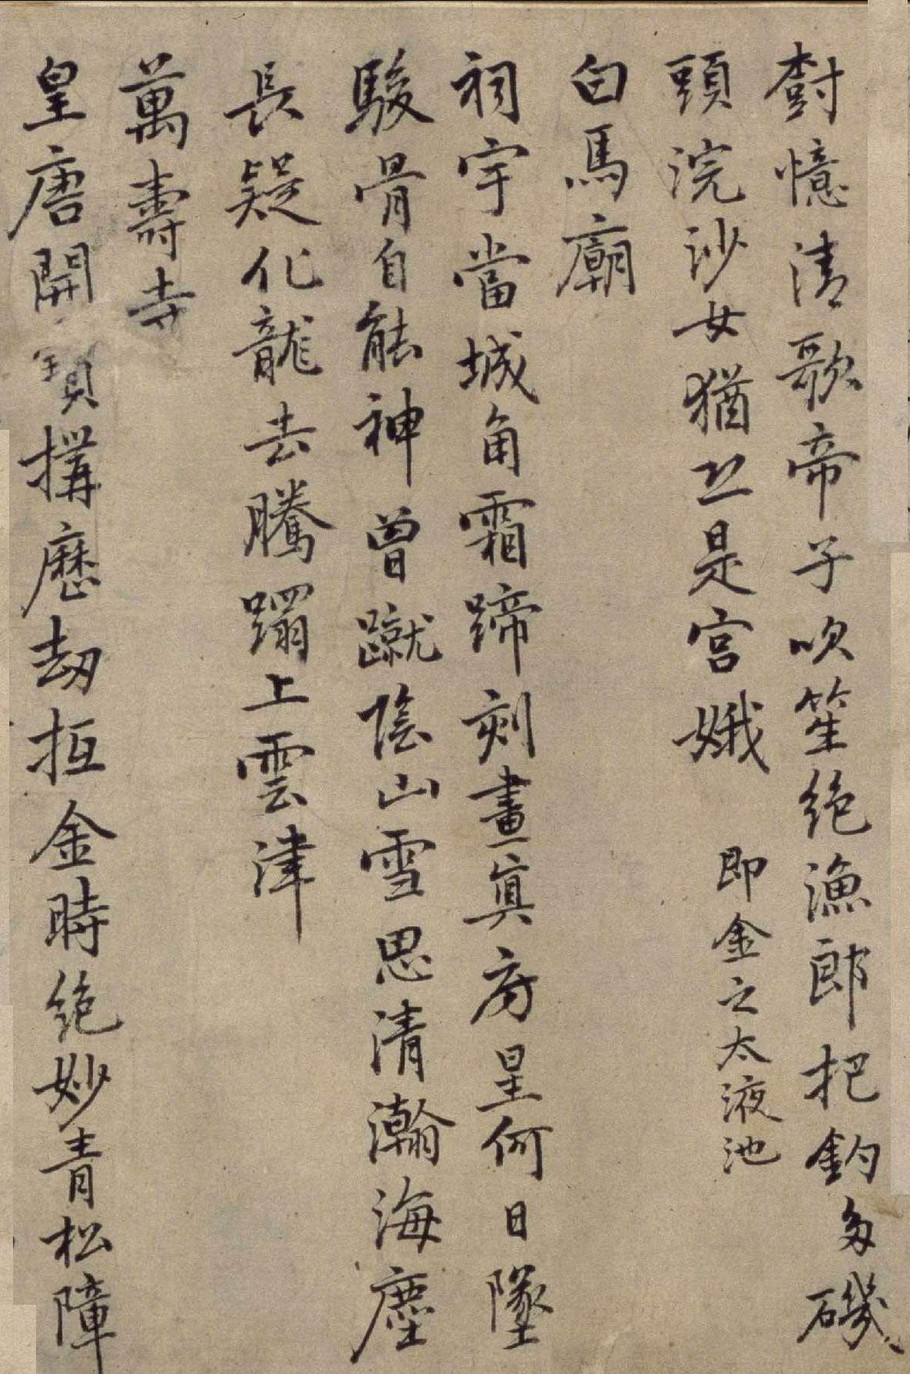 樹憶清歌帝子吹笙絶漁郎把釣多磯
頭浣沙女猶恐是宮娥 即金之太液池
白馬廟
祠宇當城角霜蹄刻畫真房星何日墜
駿骨自能神曾蹴陰山雪思清瀚海塵
長疑化龍去騰蹋上雲津
萬壽寺
皇唐開寶搆歷劫抵金時絶妙青松障